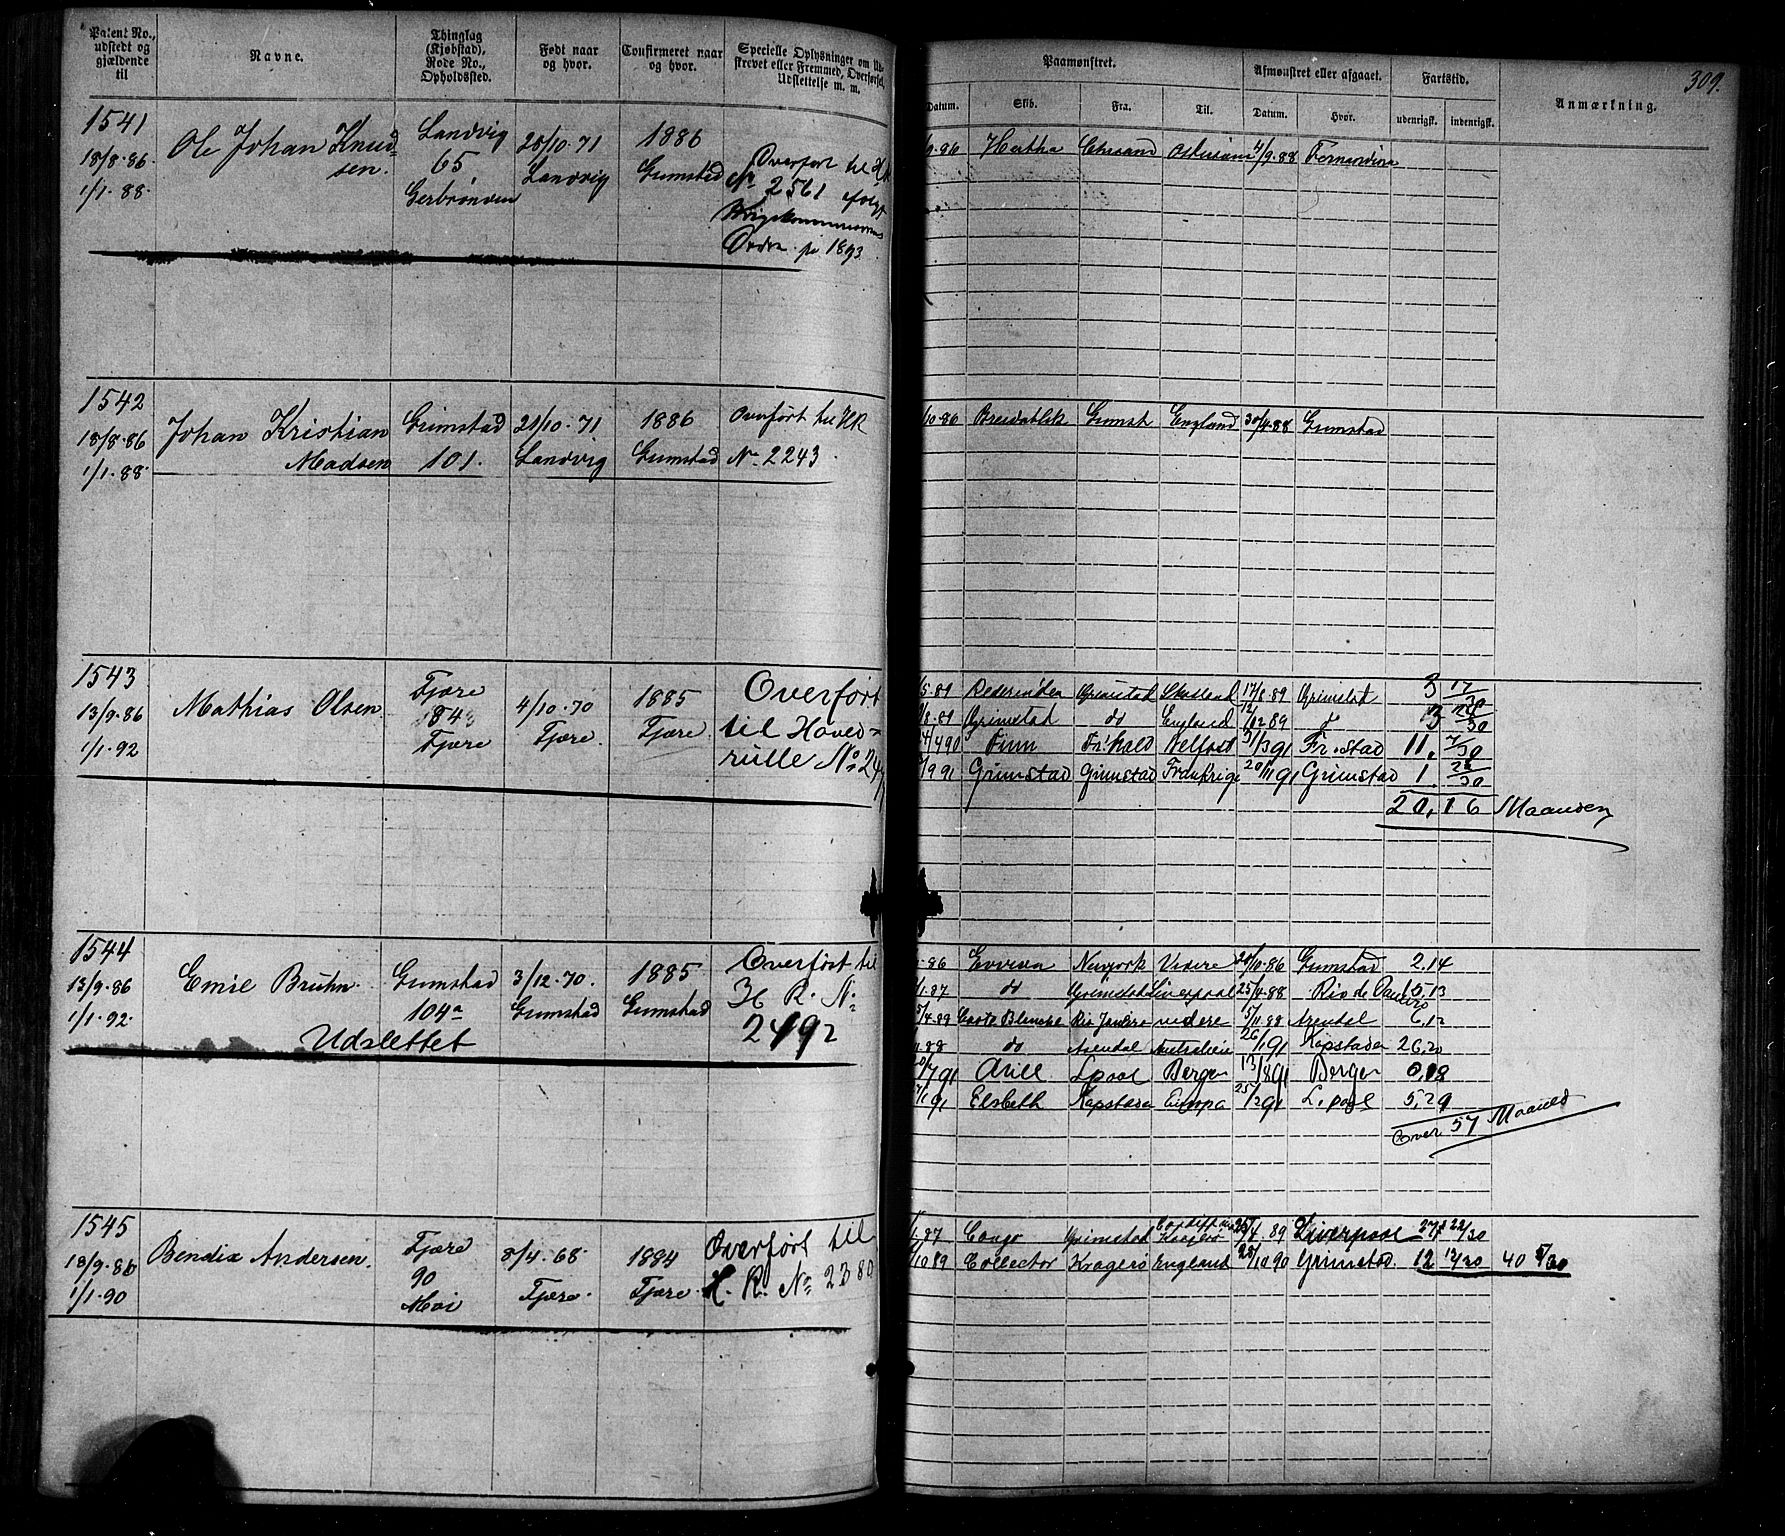 Patent No., udstedt og gjældende til
Navne.
Thinglag (Kjøbstad), Rode No., Opholdssted.
Født naar og hvor.
Confirmeret naar og hvor.
Specielle Oplysninger om Ud-
skrevet eller Fremmed, Overførsel,
Udslettelse m. m.
Paamønstret.
Afmønstret eller afgaaet.
Fartstid.
Anmærkning.
309.
Datum.
Skib.
Fra.
Til.
Datum.
Hvor.
udenrigsk.
indenrigsk.
1541
18/8-86
1/1-88
Ole Johan Knud-
sen.
Landvig
65
28/10-71
Landvig
1886
Grimstad
Overført til
No 2561
Ordre pr 1893
9-86 Hertha Chrsand 9-88
1542
18/8-86
1/1-88
Johan Kristian
Madsen
Grimstad
101.
21/10-71
Landvig
1886
Grimstad
Overført til HR
No 2243
10-86 Grimst England 30/4-88 Grimstad
1543
13/9-86
1/1-92
Mathias Olsen
Fjære
84
Fjære
4/10-70
Fjære
1885
Fjære
Overført
til Hoved-
rulle No 24
5-89 Grimstad 17/8-89 Grimstad 3 17/30
8-89 Grimstad do England 12/12 89 do 3
4/4 90 Finn 31/3 91 Fr.stad 11. 7/30
9 91 Grimstad Grimstad 20/11 91 Grimstad 1 22/30
20,16 Maaneder
1544
13/9-86
1/1-92
Emil Bruhn
Udslettet
Grimstad
104a
3/12-70
Grimstad
1885
Grimstad
Overført til
H R. No
2492
86 Newyork Videre 28/10-86 Grimstad 2.14
1-87 do Grimstad Liverpool 25/4-88 Rio de Janeiro
5/4-89 Rio Janeiro videre 5/11 88 Arendal 6,12
88 do Arendal Australien 26/1 91 Kapstaden 26,20
7 91 Arild Lpool Bergen 13/8 91 Bergen 0,18
1 91 Elsbeth Kapstaden Europa 25/2 91 L.pool 5,29
Over 57 Maaned
1545
18/9-86
1/1-90
Bendix Andersen.
Fjære
90
Moi
8/4-68
Fjære
1884
Fjære
Overført til
H. R. No 2380
87 Congo Grimstad 4 89 Liverpool 27 22/30
10 89 Collector Kragerø England 28/10 90 Grimstad. 12 13/30 40 5/30